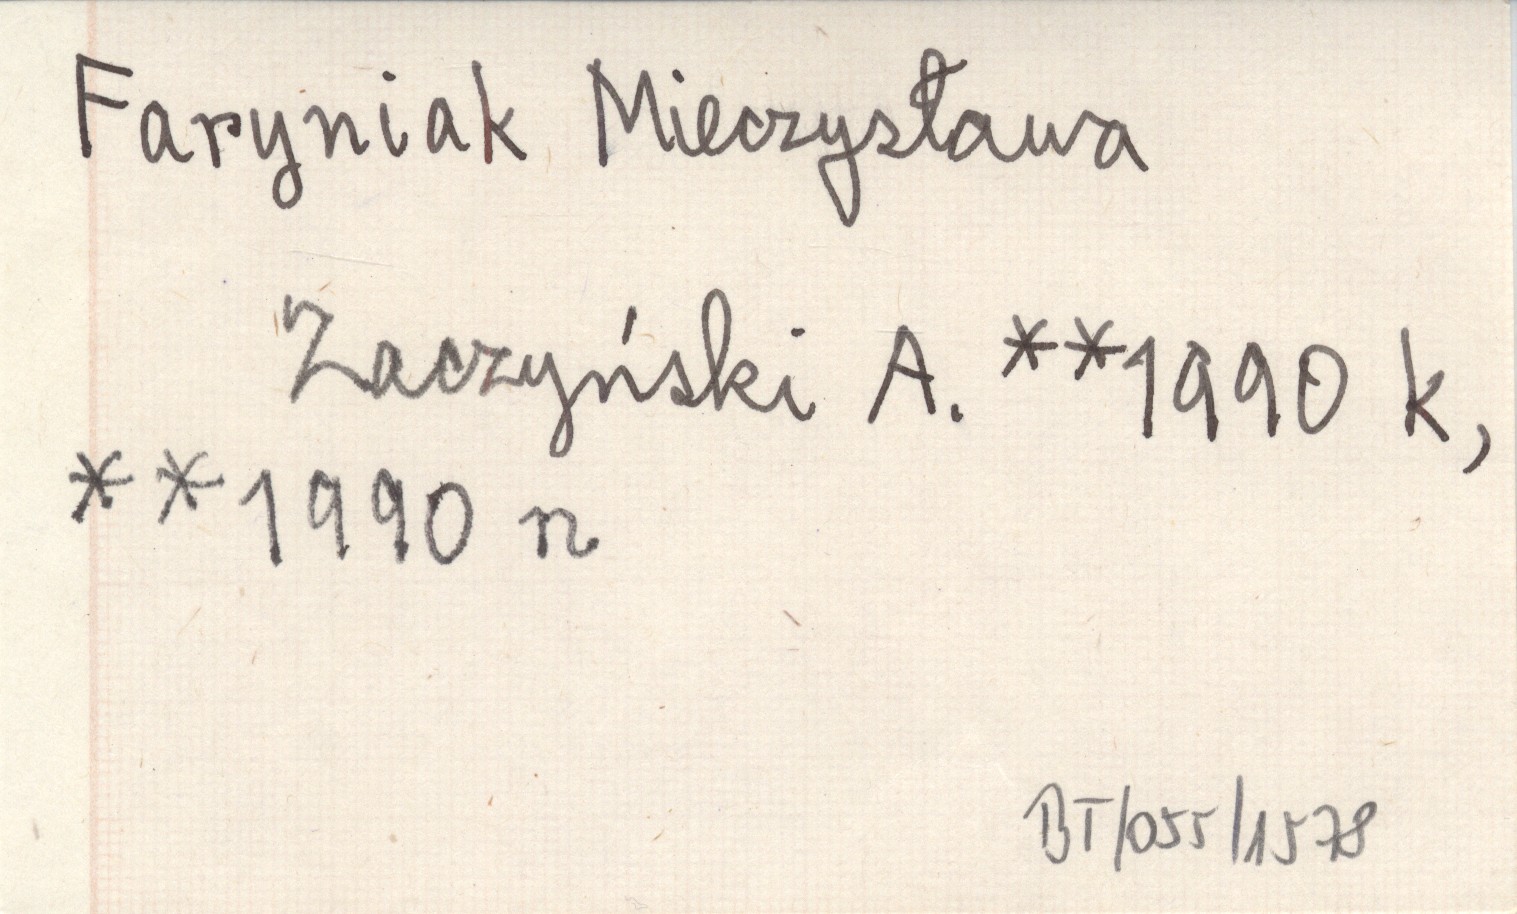 Faryniak Mieczysława
Zaczyński A. **1990 k,
**1990 n
BT/055/1578